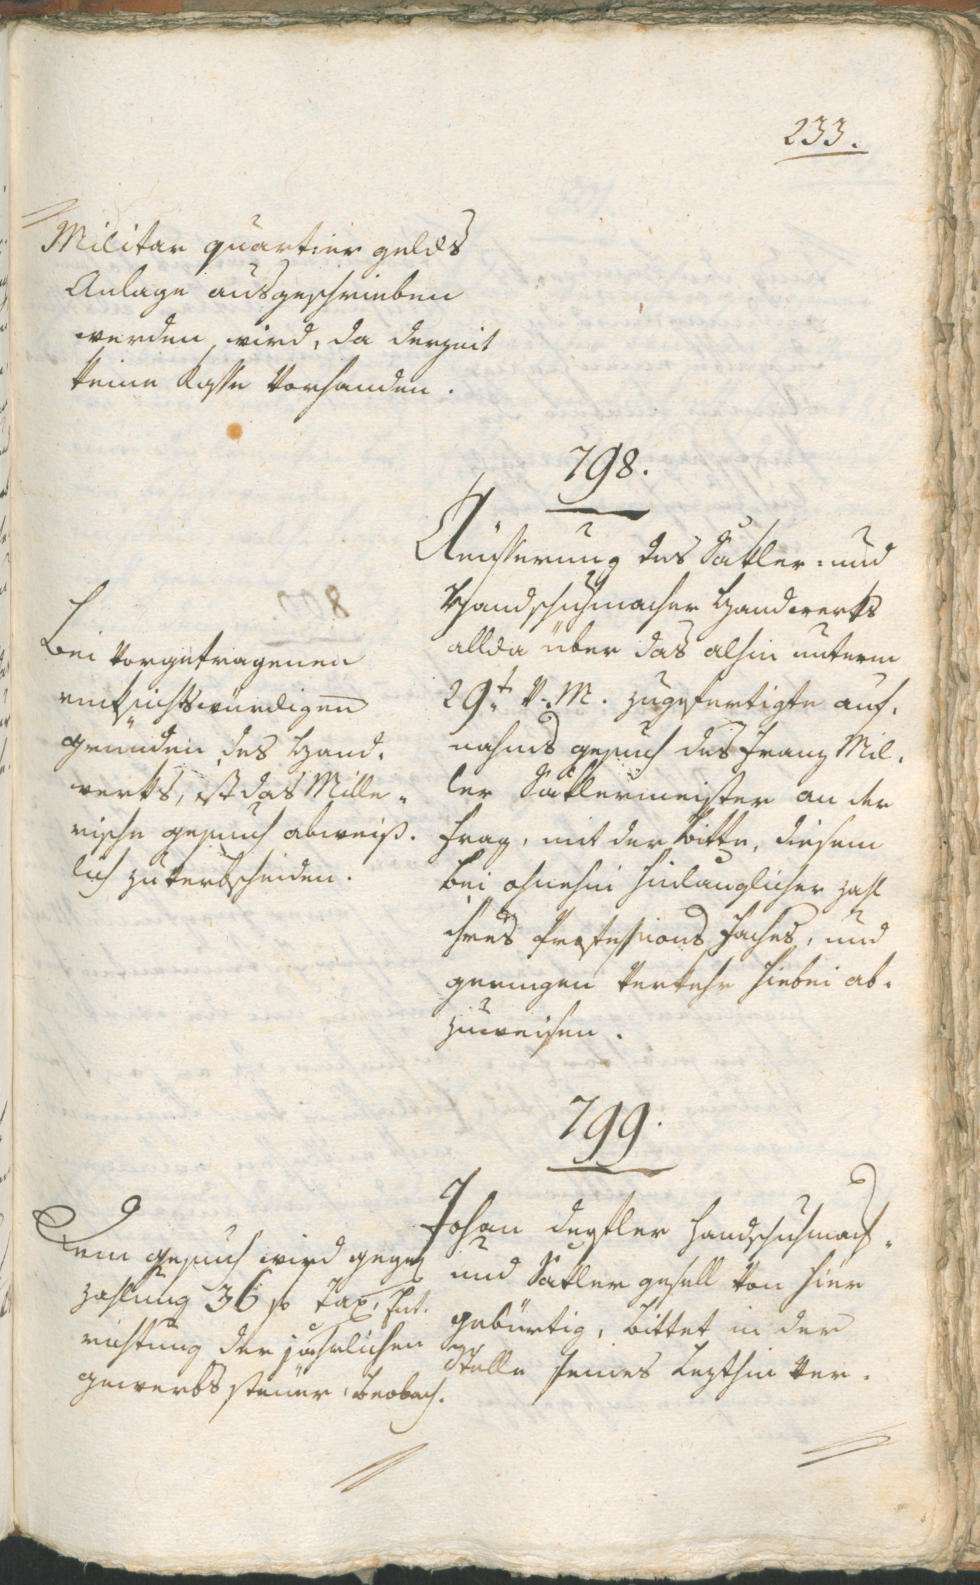 233.
Militar quartier gelds
Anlage ausgeschrieben
werden wird, da derzeit
keine Kasse vorhanden.
798.
Aeusserung des Satler- und
Handschuhmacher Handwerks
allda über das alhin unterm
29t. v. M. zugefertigte auf-
nahms gesuch des Franz Mil-
ler Satlermeister an der
Frag, mit der Bitte, diesem
bei ohnehin hinlänglicher zahl
ihres Professions Faches, und
geringen Verkehr hiebei ab-
zuweisen.
Bei vorgetragenen
rücksichtswürdigen
gründen des Hand-
werks, ist das Mille-
rische gesuch abweiß-
lich zu verbscheiden.
799.
Johan Degtler Handschuhmach-
und Satler gesell von hier
gebürtig, bittet in der
Stelle seines lezthin ver-
Dem gesuch wird gegen
zahlung 36 f Tax, Ent-
richtung der jährlichen
gewerbs steuer, Beobach-